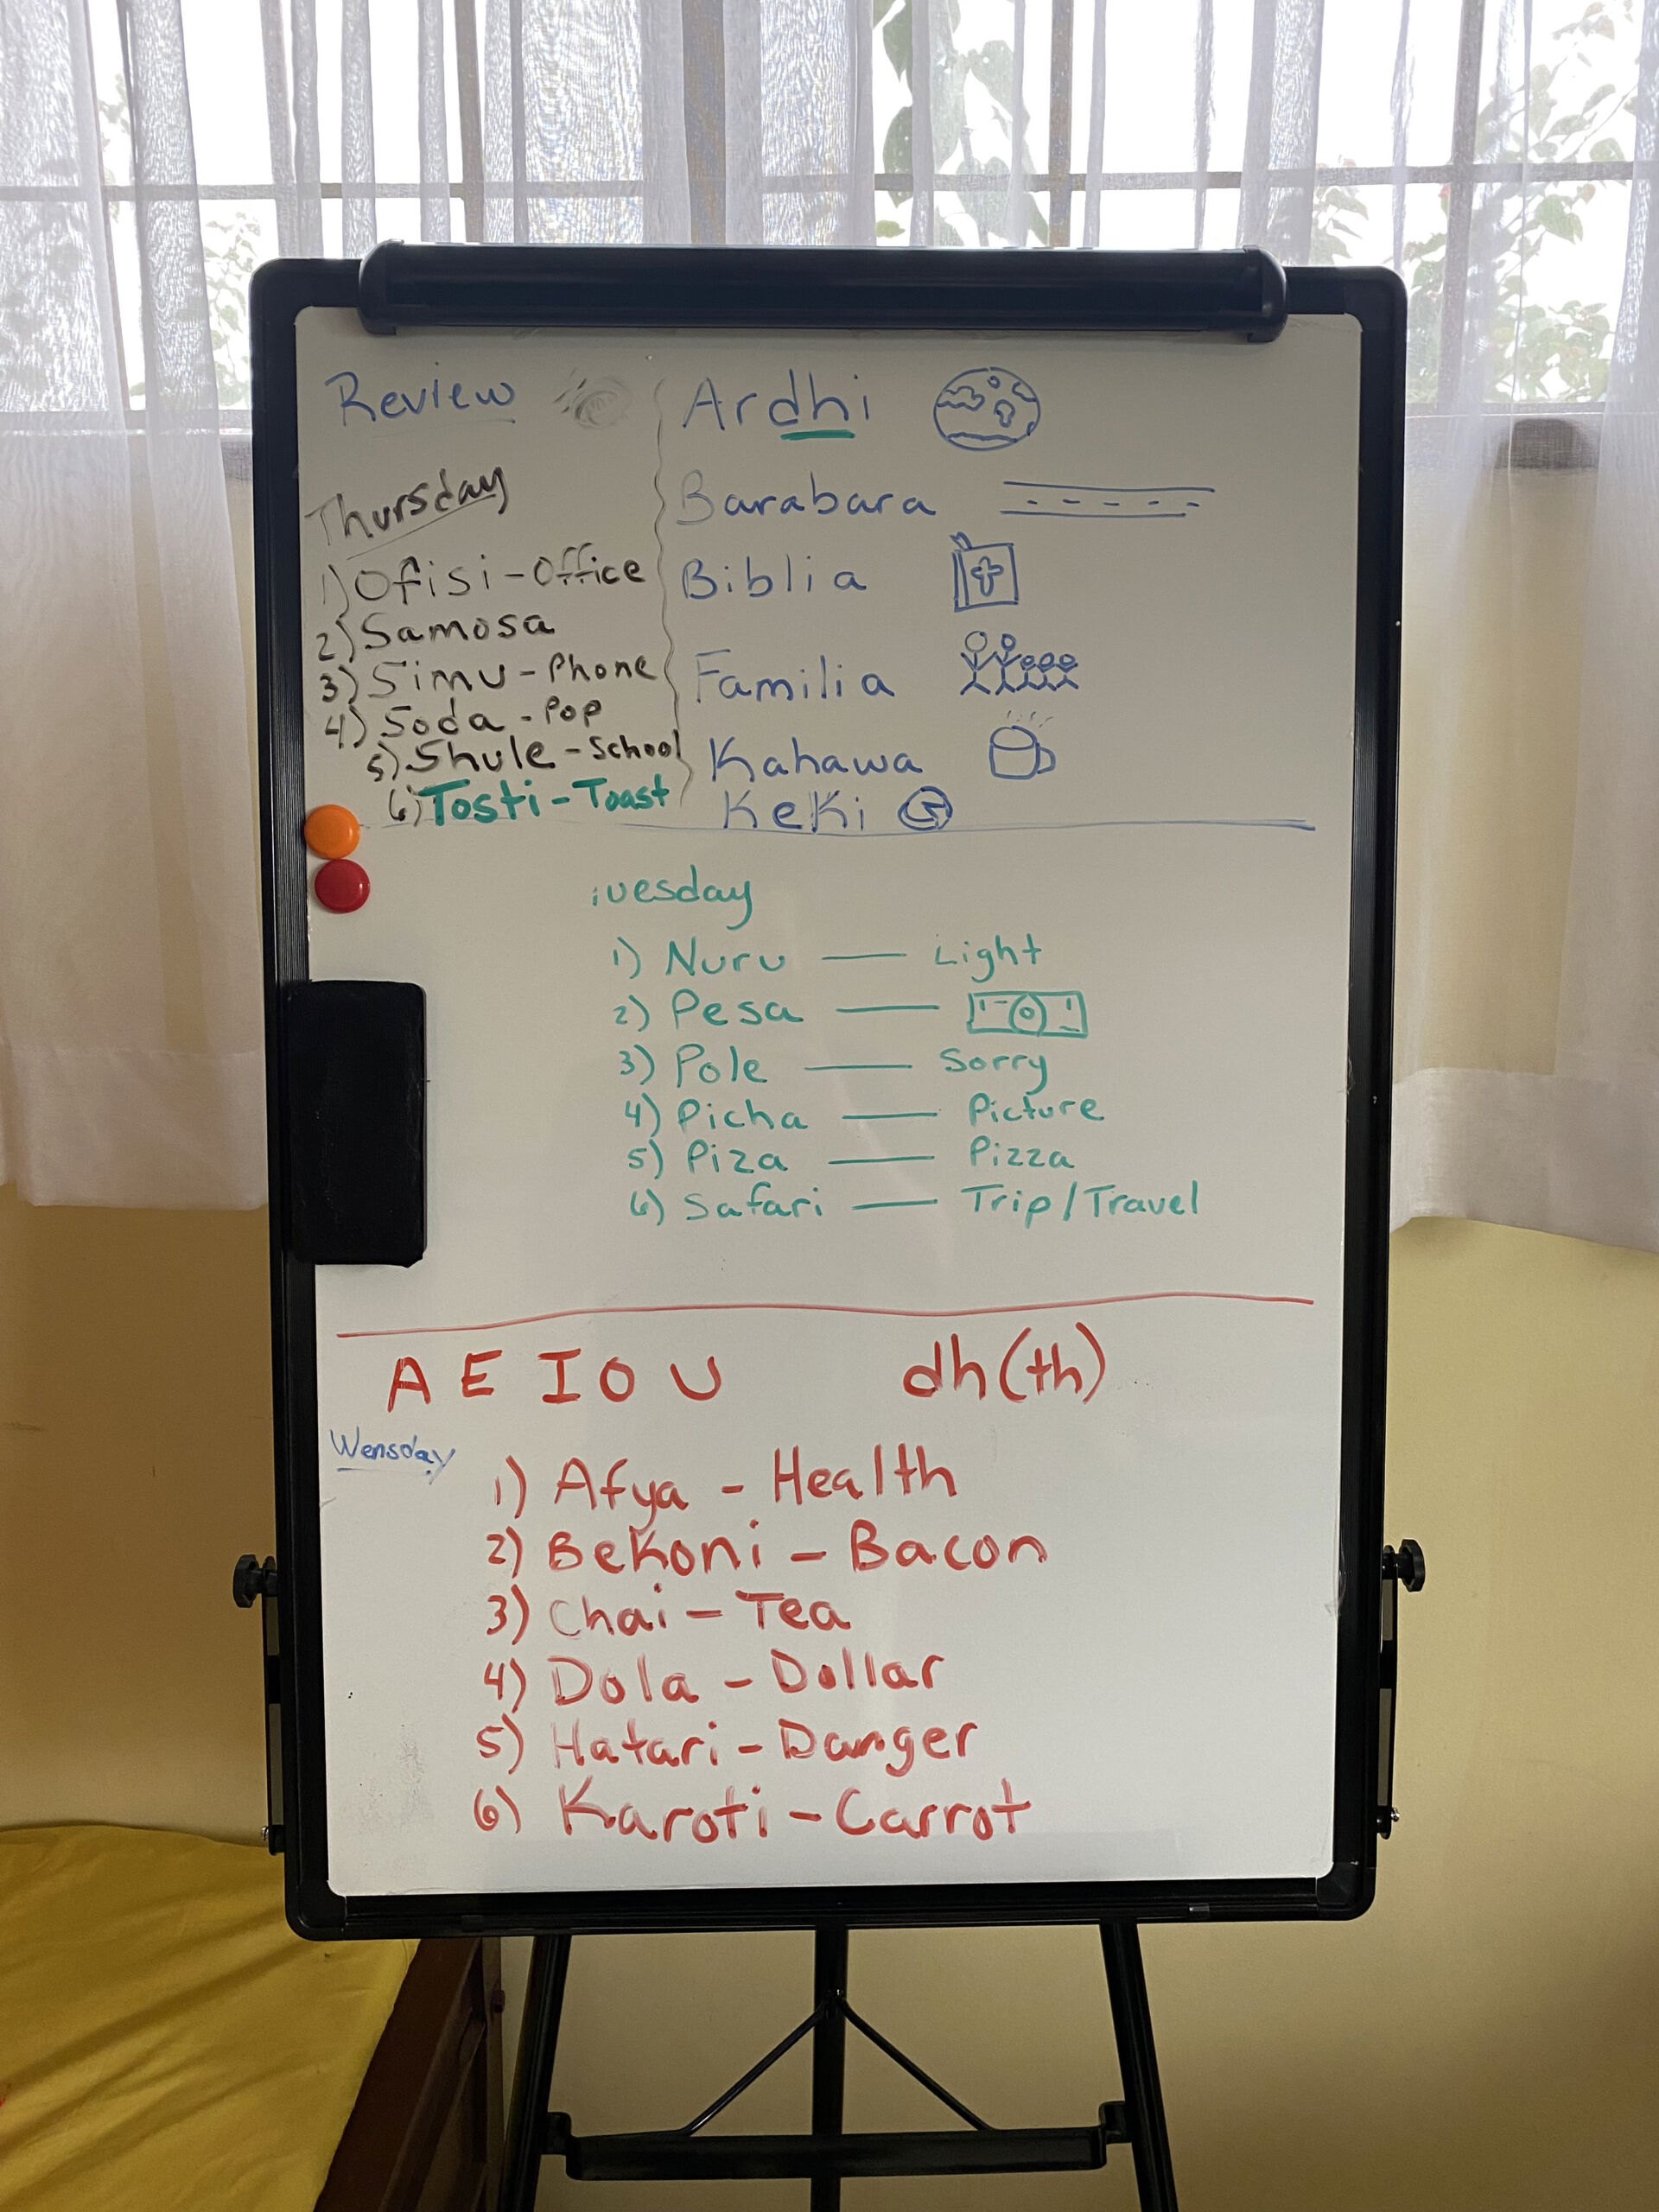 Review
Thursday
1) Ofisi - Office
2) Samosa
3) Simu - Phone
4) Soda - Pop
5) Shule - School
6) Tosti - Toast
Ardhi
Barabara
Biblia
Familia
Kahawa
KeKi
Tuesday
1) Nuru — Light
2) Pesa —
3) Pole — Sorry
4) Picha — Picture
5) Piza — Pizza
6) Safari — Trip/Travel
A E I O U dh(th)
Wensday
1) Afya - Health
2) BeKoni - Bacon
3) Chai - Tea
4) Dola - Dollar
5) Hatari - Danger
6) Karoti - Carrot